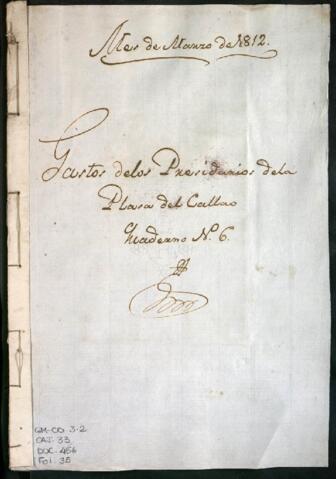 Mes de Marzo de 1812.
Gastos delos Presidarios dela
Plasa del Callao
Quaderno N.º 6.
GM-CO 3.2
CAJ. 33
DOC. 456
Fol. 35